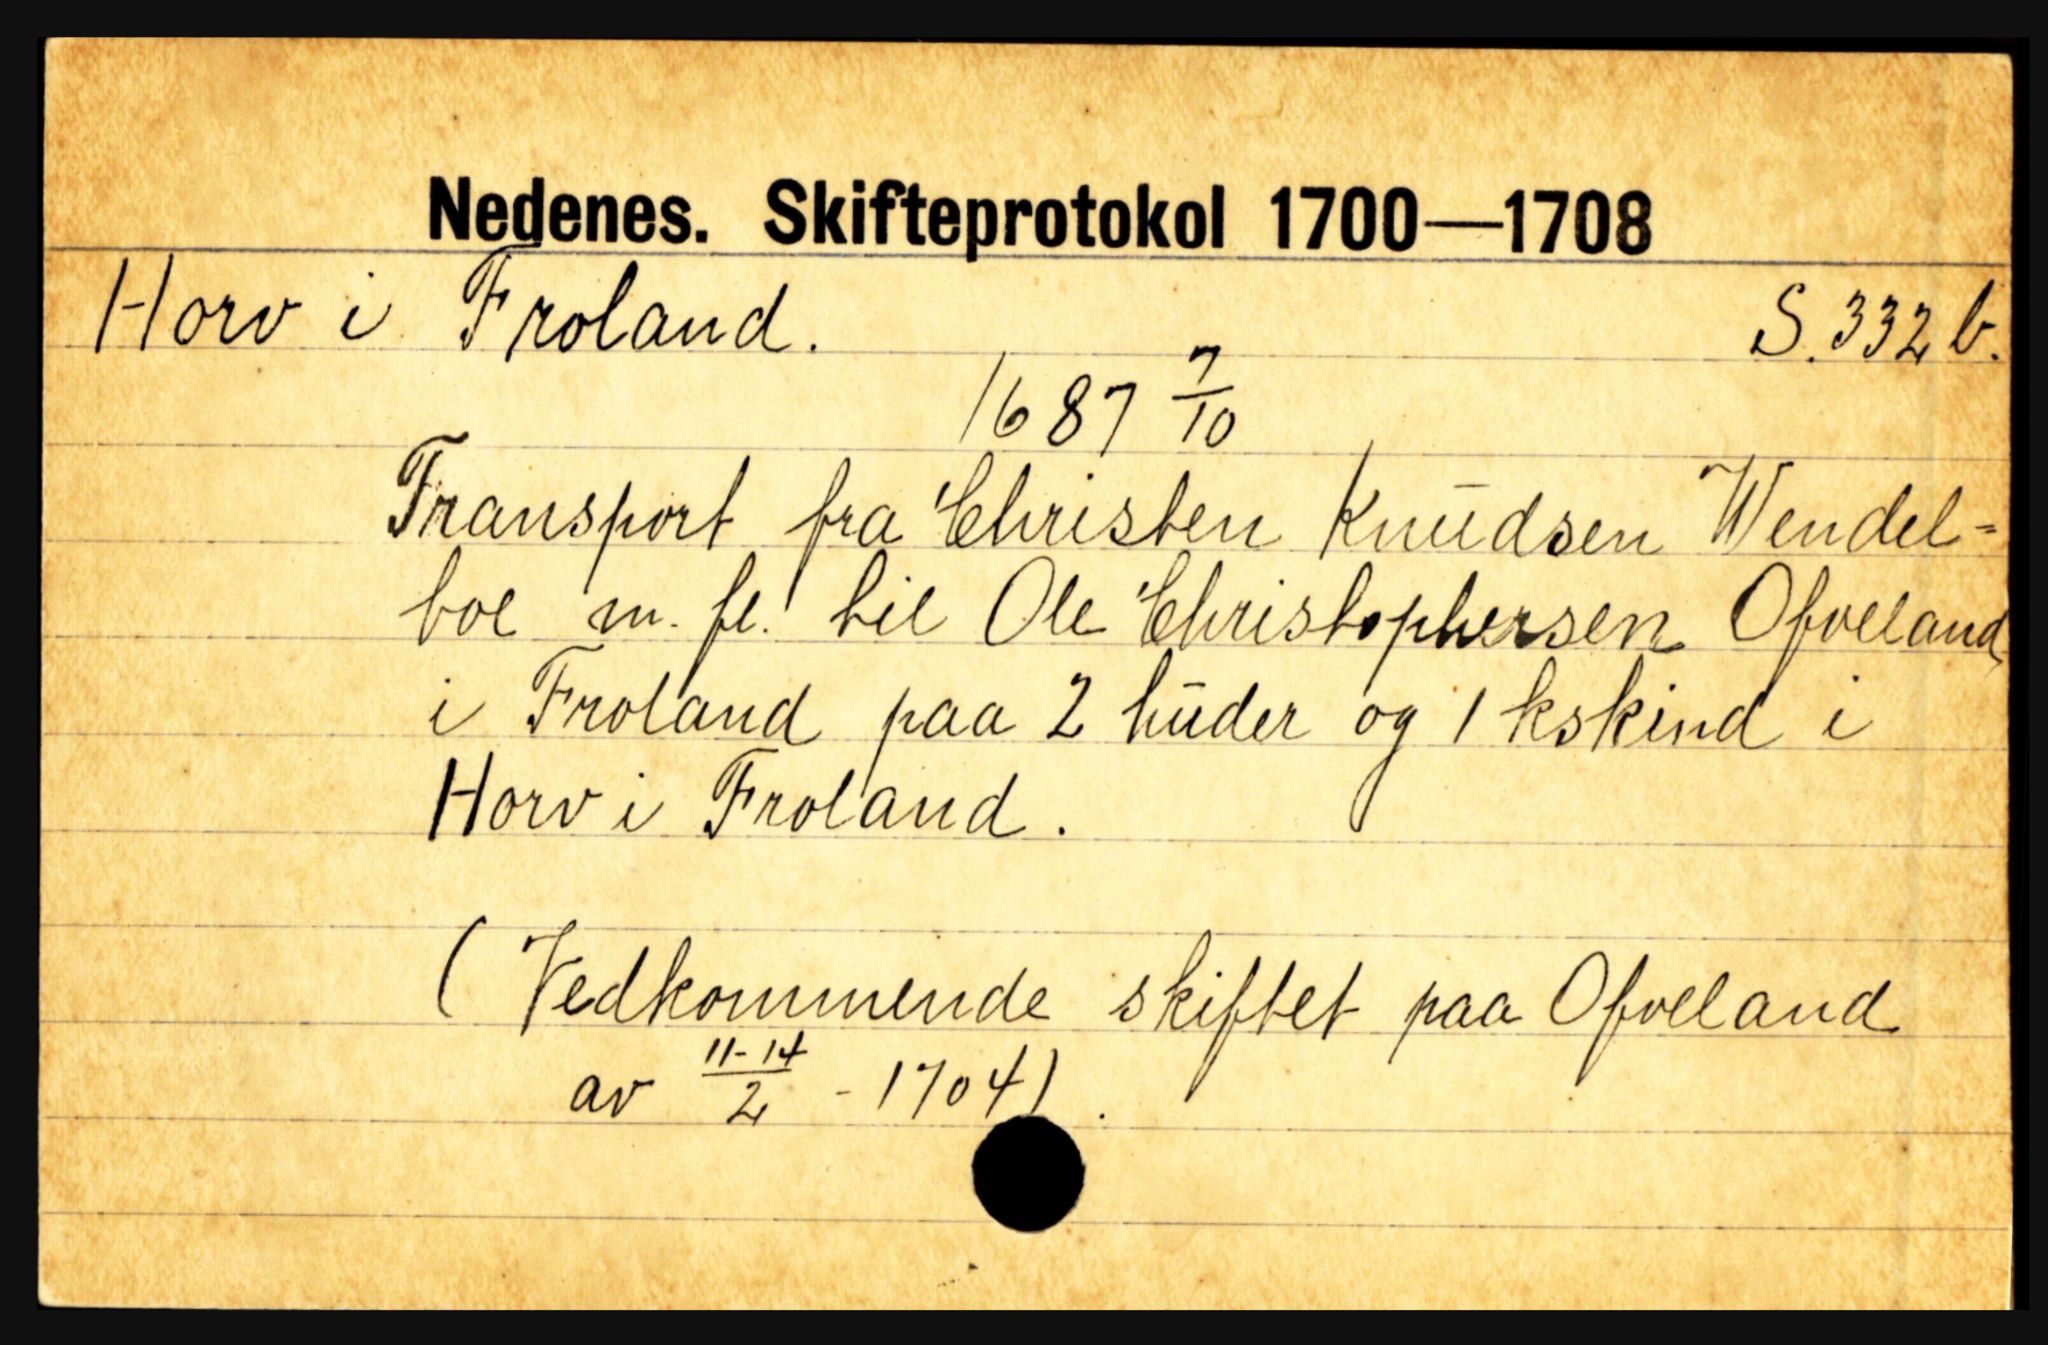 Nedenes. Skifteprotokol 1700—1708
Horv i Froland. S. 332 b.
1687 7/10
Transport fra Christen Knudsen Wendel=
boe m. fl. til Ole Christophersen Ofveland
i Froland paa 2 huder og 1 kskind i
Horv i Froland.
(Vedkommende skiftet paa Ofveland
av 11-14/2 - 1704).